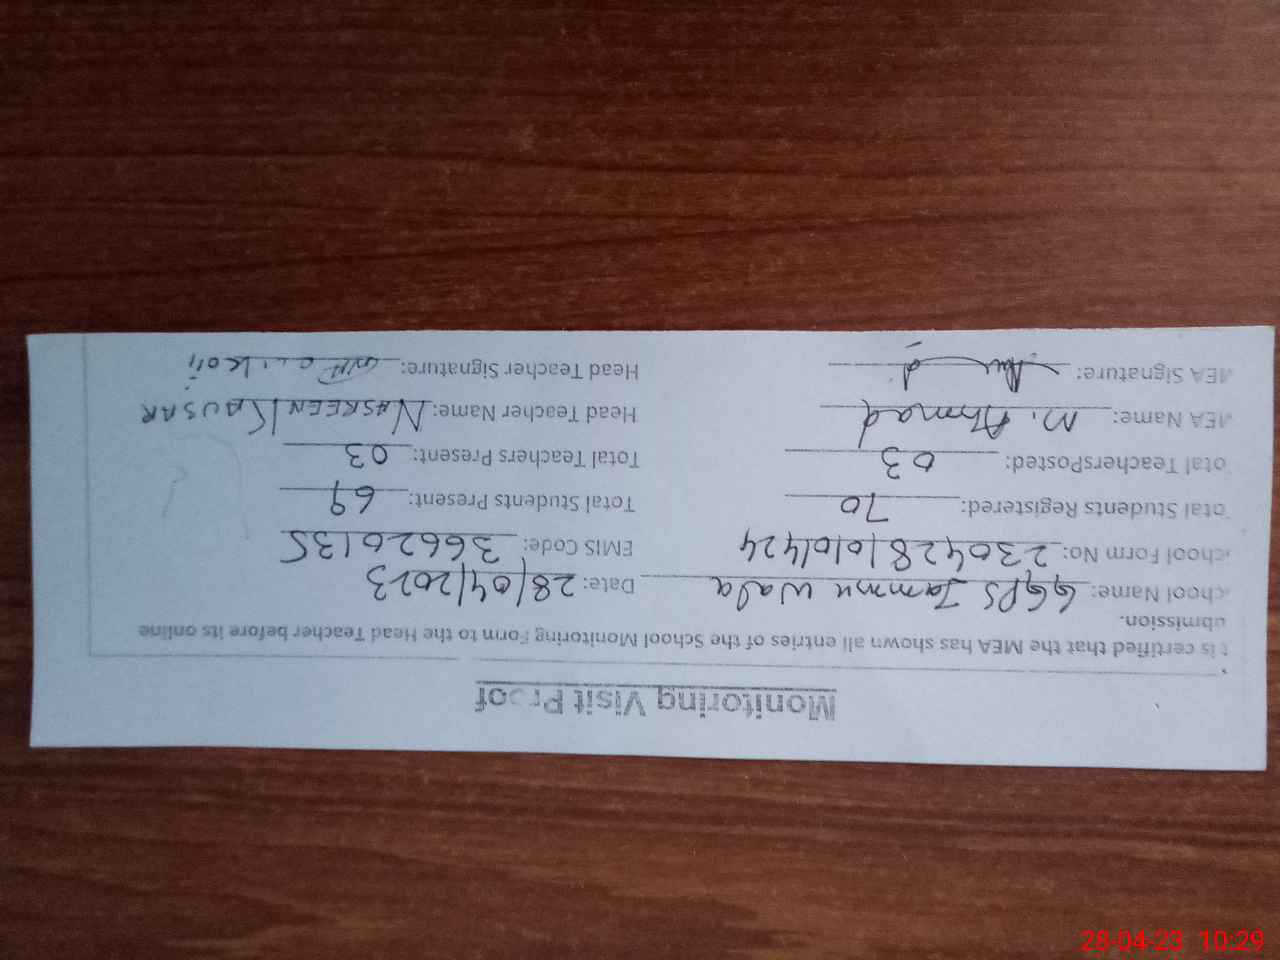 Monitoring Visit Proof
t is certified that the MEA has shown all entries of the School Monitoring Form to the Head Teacher before its online
ubmission.
chool Name: GGPS Jammu Wala Date: 28/04/2023
chool Form No: 23042810101424 EMIS Code: 36620135
otal Students Registered: 70 Total Students Present: 69
otal TeachersPosted: 03 Total Teachers Present: 03
MEA Name: M. Ahmad Head Teacher Name: NASREEN KAUSAR
MEA Signature: Head Teacher Signature:
28-04-23 10:29